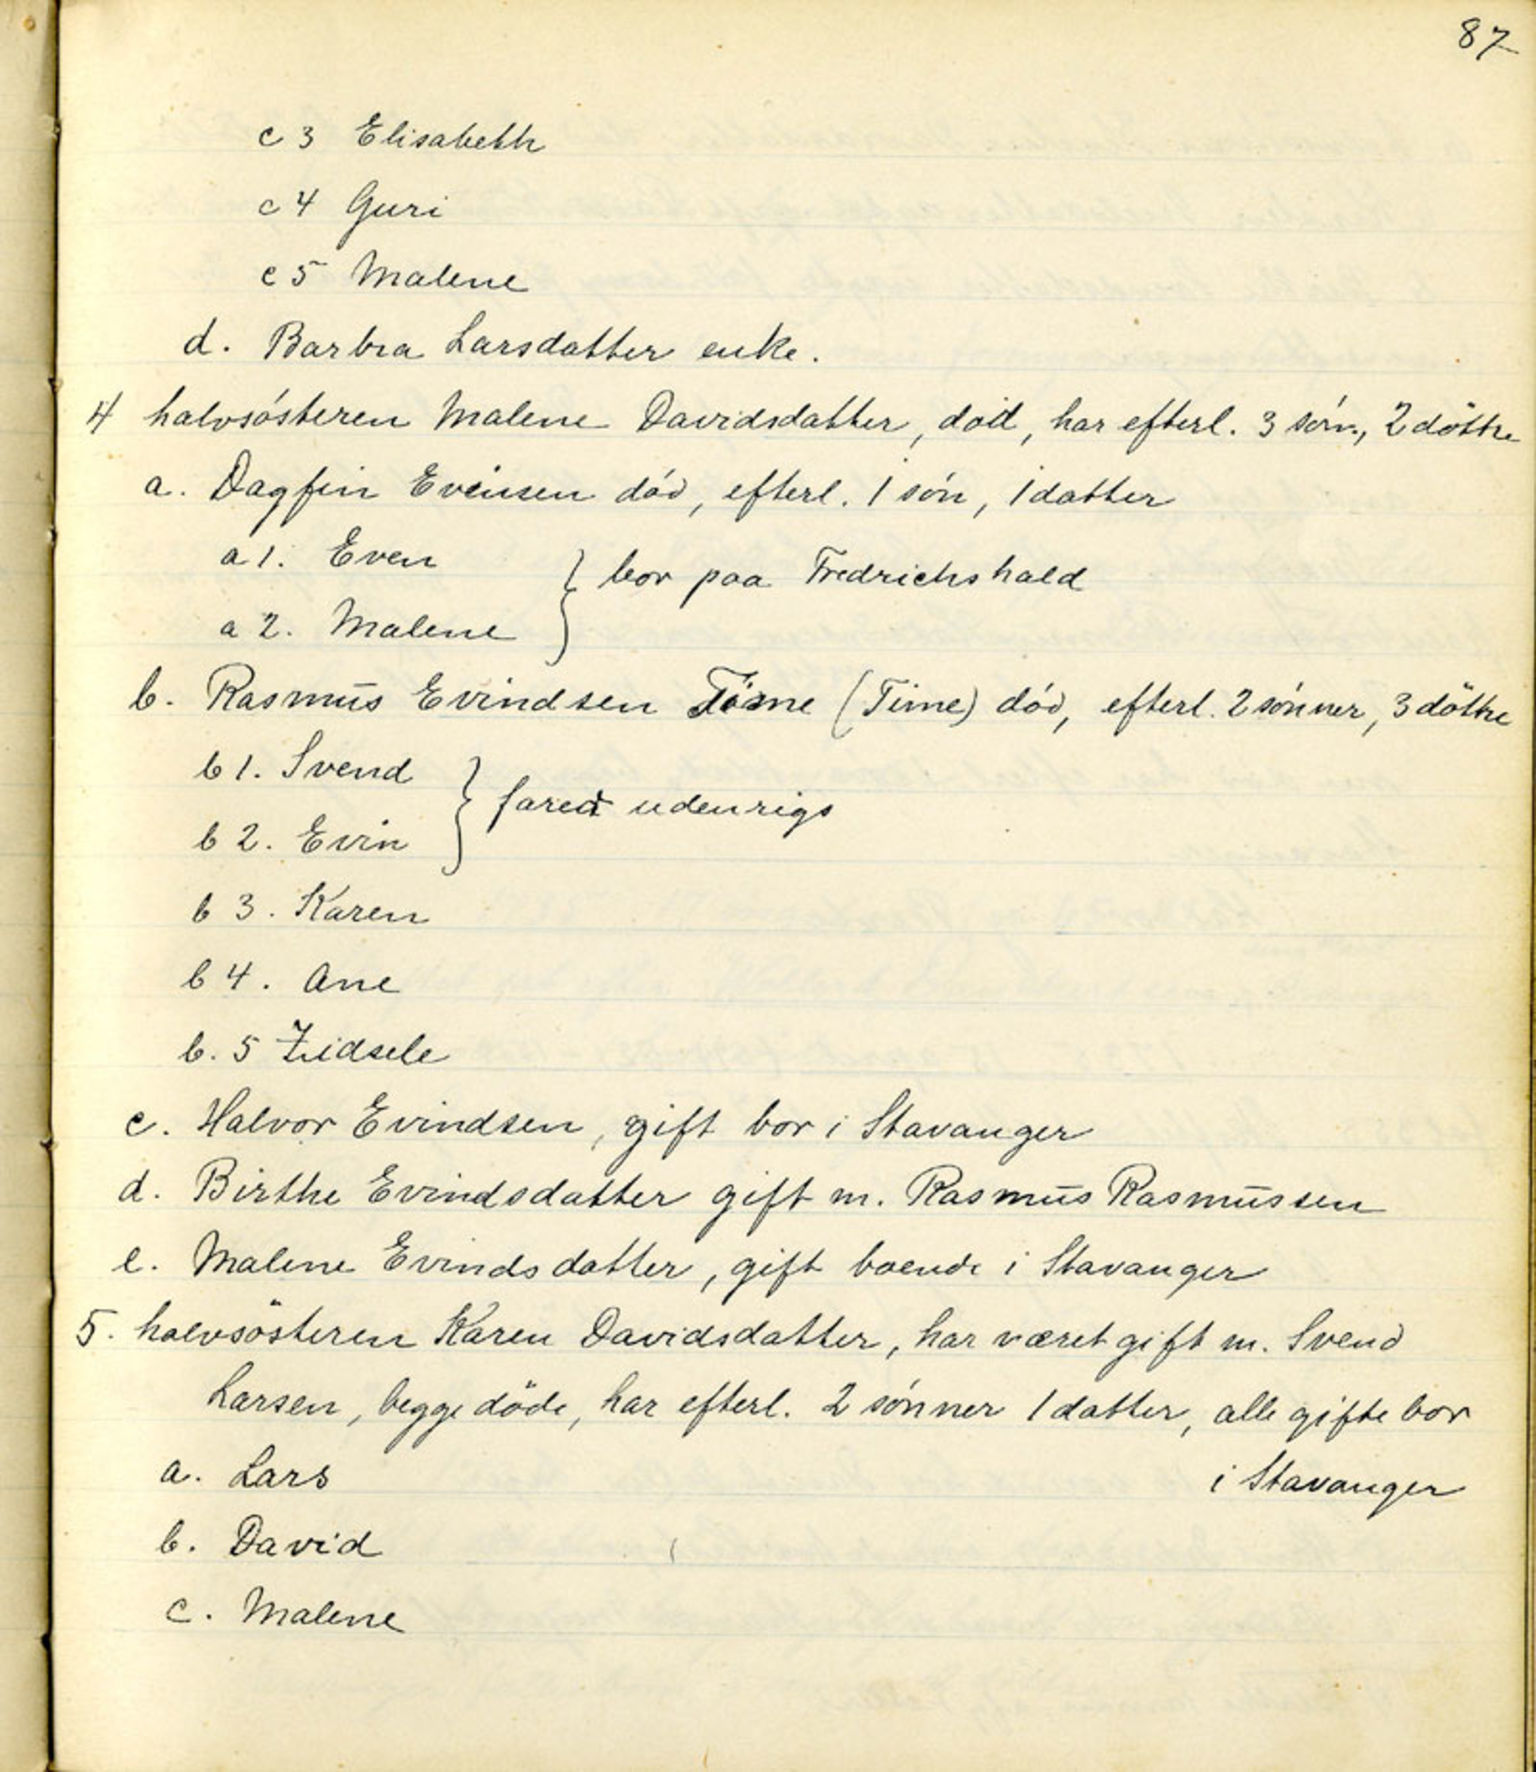 87
c 3 Elisabeth
c 4 Guri
c 5 Malene
d. Barbra Larsdatter enke.
4 halvsösteren Malene Davidsdatter, död, har efterl. 3 sön., 2 döttre
a. Dagfin Evensen död, efterl. 1 sön, 1 datter
a 1. Even } bor paa Fredrichshald
a 2. Malene
b. Rasmus Evindsen (Time) död, efterl. 2 sönner, 3 döttre
b 1. Svend } faret udenrigs
b 2. Evin
b 3. Karen
b 4. Ane
b. 5 Zidsele
c. Halvor Evindsen, gift bor i Stavanger
d. Birthe Evindsdatter gift m. Rasmus Rasmussen
e. Malene Evindsdatter, gift boende i Stavanger
5. halvsösteren Karen Davidsdatter, har været gift m. Svend
Larsen, begge döde, har efterl. 2 sönner 1 datter, alle gifte bor
i Stavanger
a. Lars
b. David
c. Malene